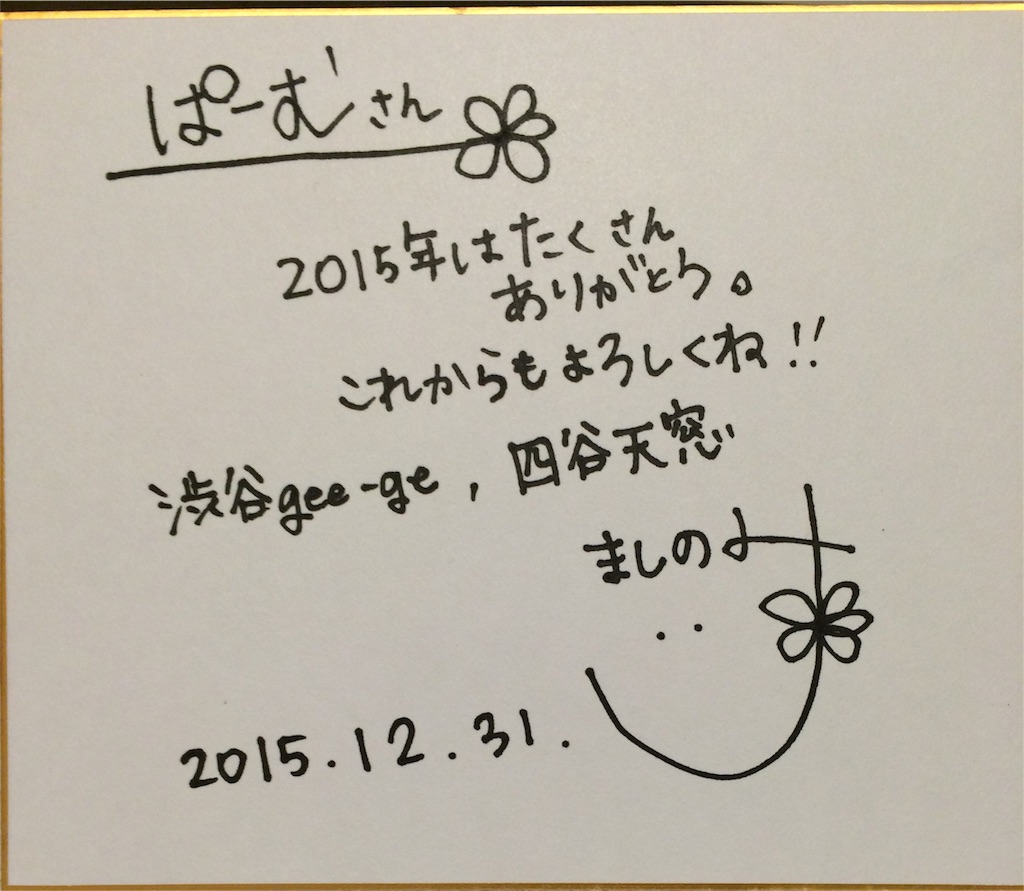 ぱーむさん
2015年はたくさん
ありがとう。
これからもよろしくね!!
渋谷gee-ge, 四谷天窓
ましのみ
2015.12.31.